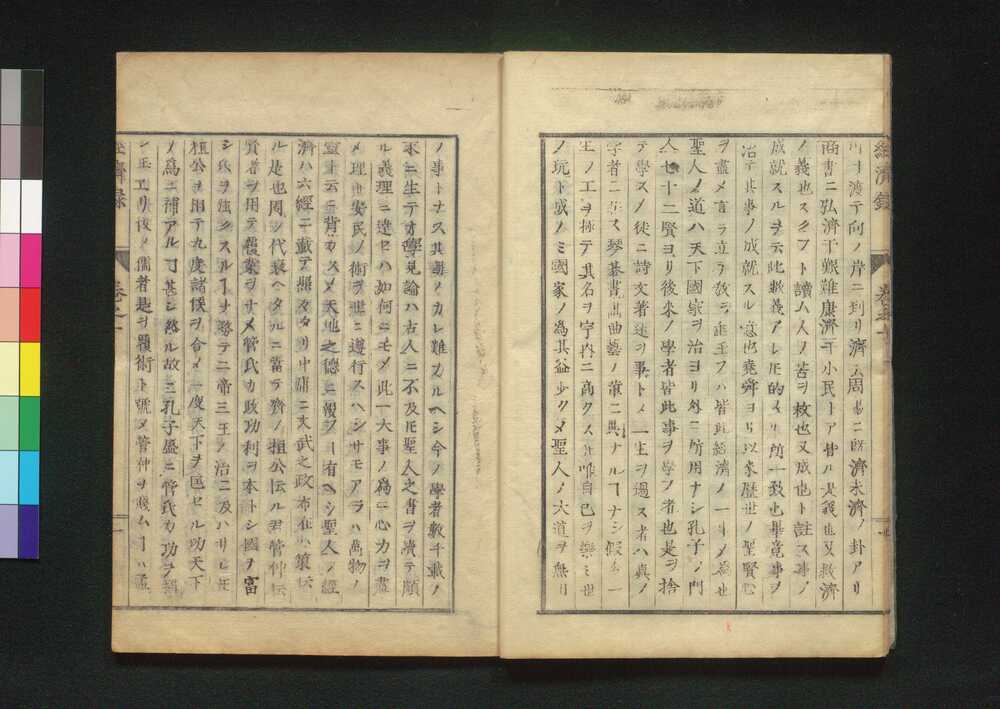 川ヲ渡テ向ノ岸ニ到リ濟ス周易ニ旣濟未濟ノ卦アリ
商書ニ弘濟于艱難康濟于小民トアル是義也又救濟
ノ義也スクフト讀ム人ノ苦ヲ救也又成也ト註ス事ノ
成就スルヲ云此數義アレ𪜈的スル所一致也畢竟事ヲ
治テ其事ノ成就スル意也堯舜ヨリ以來歷世ノ聖賢心
ヲ盡メ言ヲ立ラ敎ヲ垂玉フハ皆此經濟ノ一事ノ爲也
聖人ノ道ハ天下國家ヲ治ヨリ外ニ所用ナシ孔子ノ門
人七十二賢ヨリ後來ノ學者皆此事ヲ學フ者也是ヲ捨
テ學スノ徒ニ詩文著述ヲ事トメ一生ヲ過ス者ハ眞ノ
學者ニ非ス琴碁書畫曲藝ノ輩ニ異ナルコナシ
生ノ工ヲ極テ其名ヲ宇內ニ高クス唯自己ヲ樂ミ世
ノ玩ト成ノミ國家ノ爲其益少クメ聖人ノ大道ヲ無リ
經濟錄 卷之一
ノ事トナス其罪ノカレ難カルヘシ今ノ學者數千載ノ
末ニ生テ才學見論ハ古人ニ不及𪜈聖人之書ヲ讀テ順
ル義理ニ達セハ如何ニモメ此一大事ノ爲ニ心力ヲ盡
メ理世安民ノ術ヲ世ニ遵行スヘシサモアラハ萬物ノ
靈ト云ニ背カスメ天地之德ニ報フコ有ヘシ聖人ノ經
濟ハ六經ニ載テ照々タリ中庸ニ文武之政布在方策伝
ル是也周ノ代衰ヘタルニ當テ齊ノ桓公伝ル君管仲伝
賢者ヲ用テ覇業ヲオサメ管氏カ政功利ヲ本トシ國ヲ富
シ兵ヲ強クスルコヲ務テ二帝三王ノ治ニ及ハサレ𪜈
桓公ヲ用テ九度諸侯ヲ合メ一度天下ヲ匡セル功天下
ノ爲ニ補アルコ甚シ然ル故ニ孔子盛ニ管氏カ功ヲ稱
シ玉エリ後ノ儒者是ヲ覇術ト號メ管仲ヲ
經濟錄 卷之一